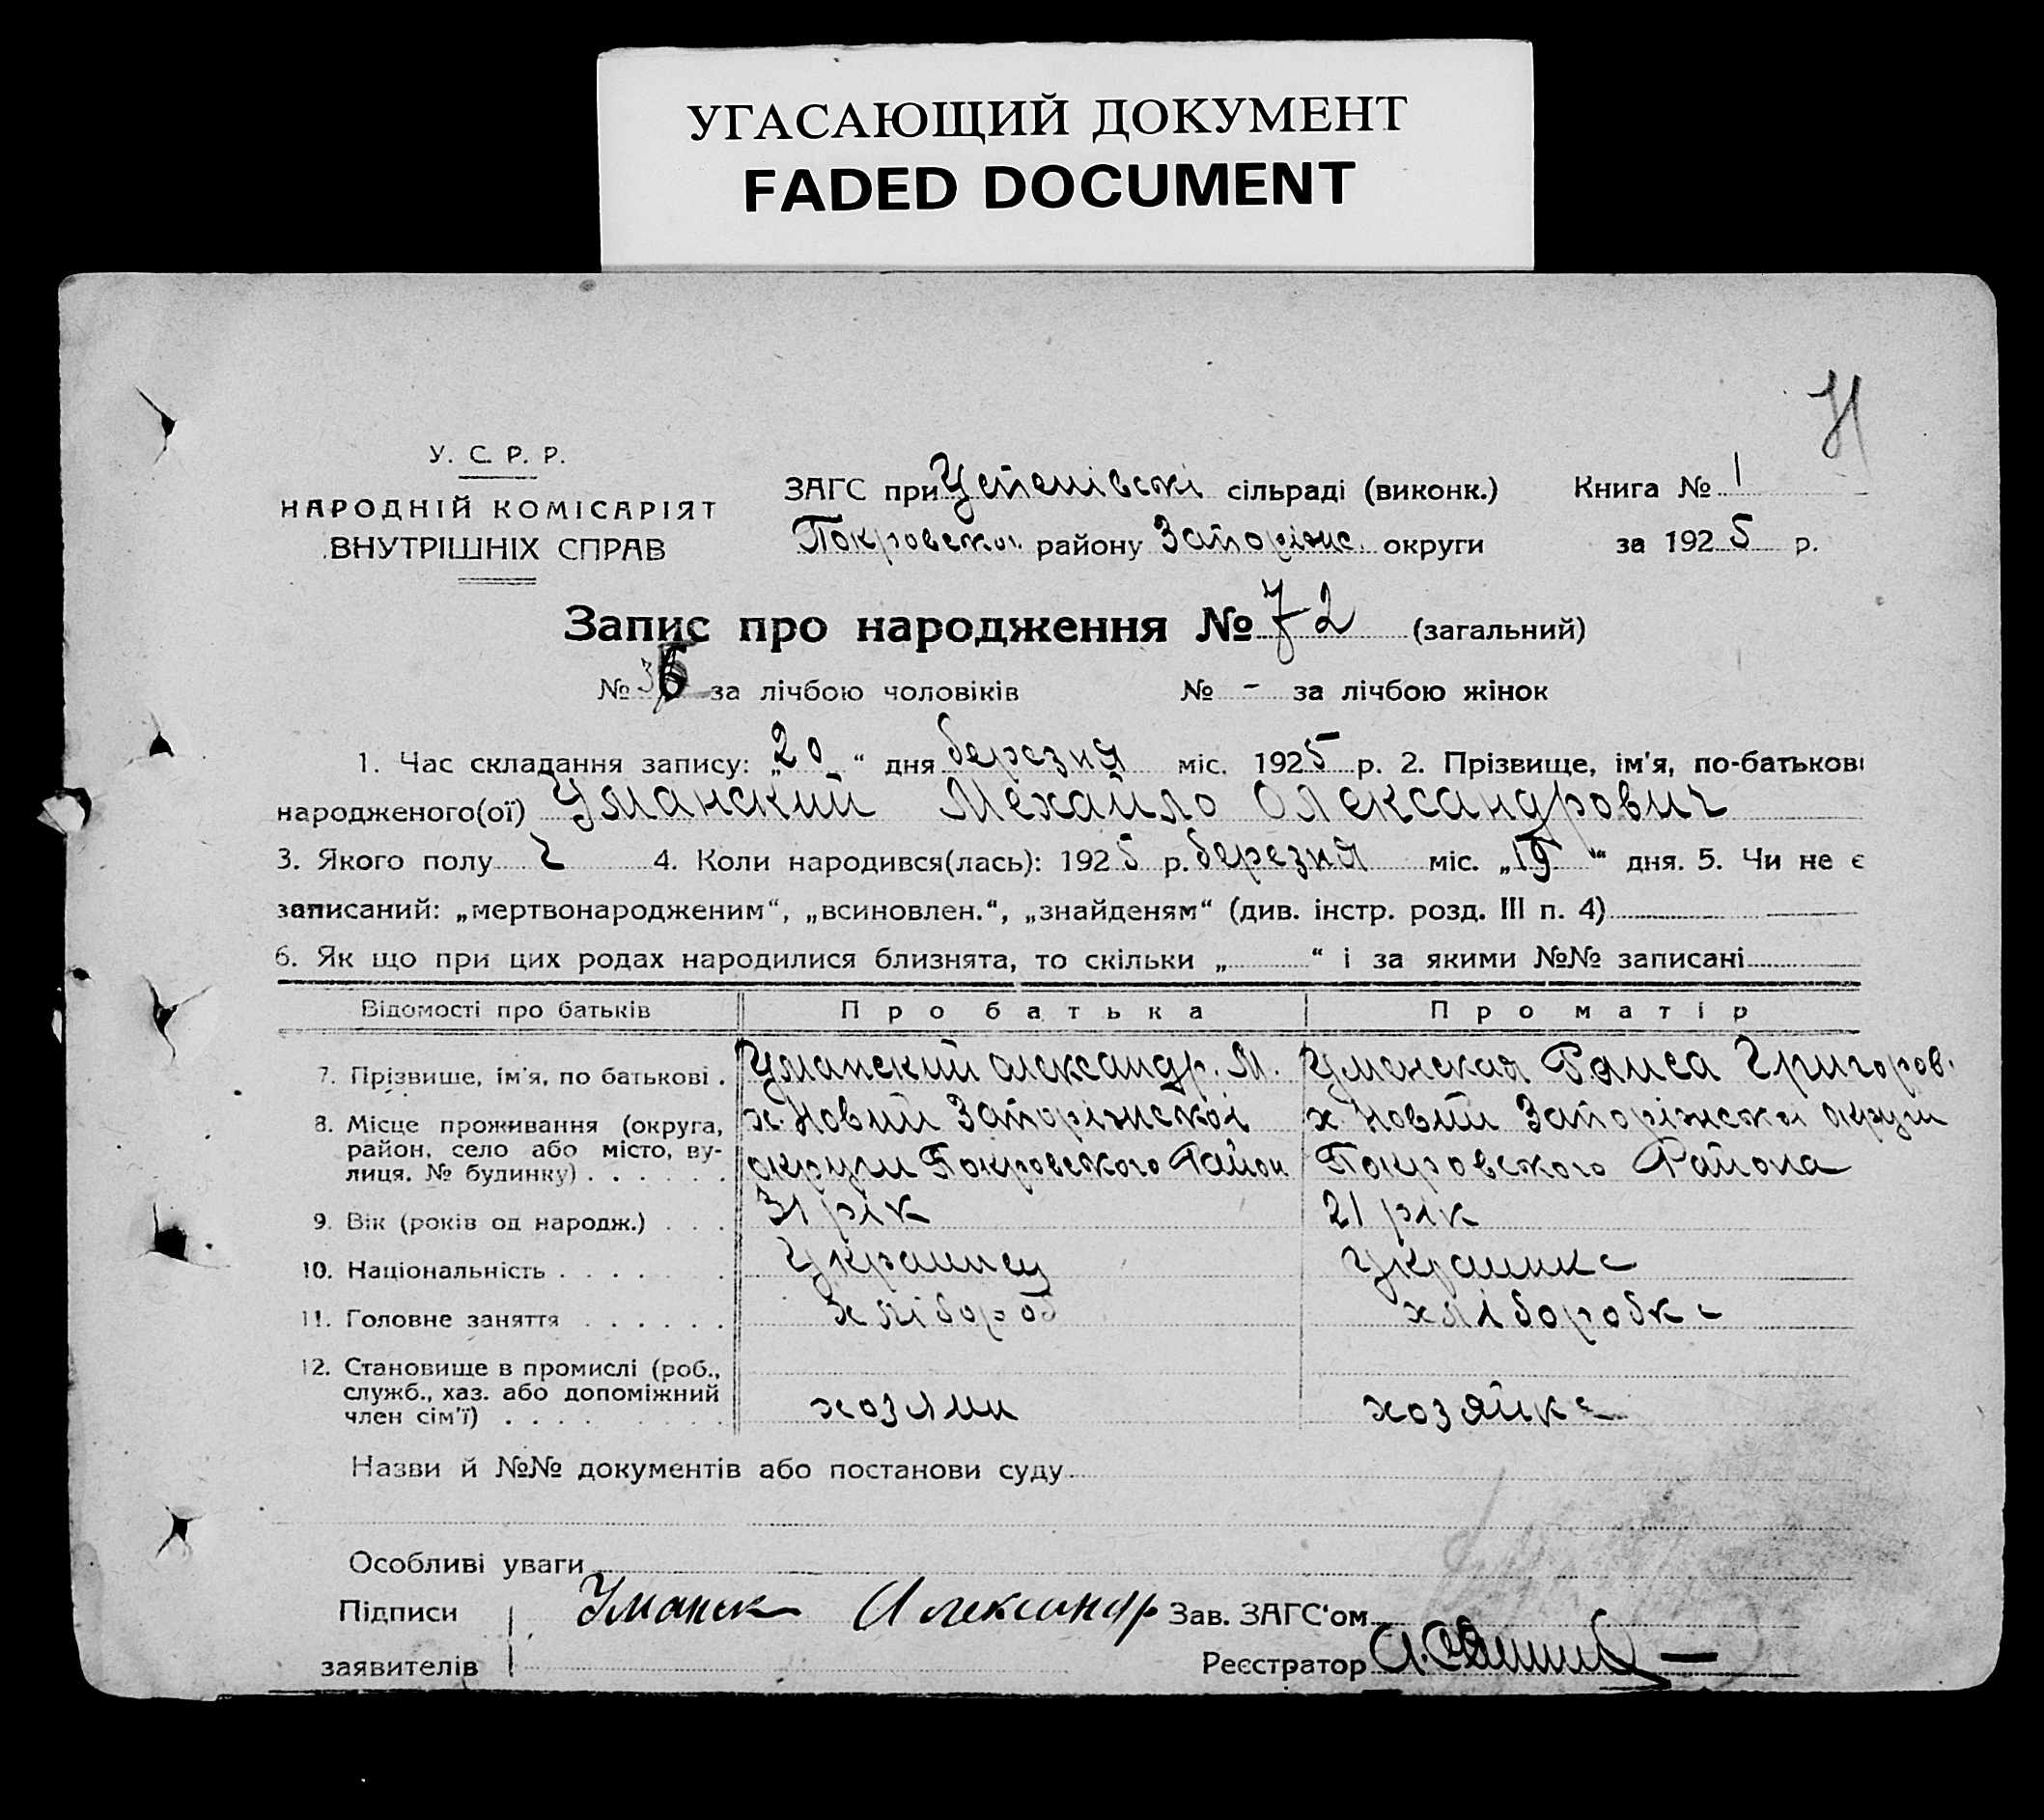 УГАСАЮЩИЙ ДОКУМЕНТ
FADED DOCUMENT
У. С. Р. Р.
НАРОДНІЙ КОМІСАРІЯТ
ВНУТРІШНІХ СПРАВ
ЗАГС при Успенівські сільраді (виконк.)
Покровськ. району Запоріжс. округи
Книга № 1
за 1925 р.
Запис про народження № 72 (загальний)
№ за лічбою чоловіків № - за лічбою жінок
1. Час складання запису: „20“ дня березня міс. 1925 р. 2. Прізвище, ім'я, по-батькові
народженого(ої) Уманский Михайло Олександрович
3. Якого полу ч 4. Коли народився(лась): 1925 р. березня міс. „19“ дня. 5. Чи не є
записаний: „мертвонародженим“, „всиновлен.“, „знайденям“ (див. інстр. розд. III п. 4)
6. Як що при цих родах народилися близнята, то скільки „ “ і за якими №№ записані
Відомості про батьків Про батька Про матір
7. Прізвище, ім'я, по батькові . Уманский Олександр. М. Уманская Раиса Григоров.
8. Місце проживання (округа, район, село або місто, вулиця, № будинку) . . . . . .
х. Новий Запоріжскої округи Покровского Район
х. Новий Запоріжскої округи Покровского Района
9. Вік (років од народж.) . . . 31 рік 21 рік
10. Національність . . . . . . . Украинец Украинка
11. Головне заняття . . . . . . хлібороб хліборобка
12. Становище в промислі (роб., служб., хаз. або допоміжний член сім'ї) . . . .
хозяин хозяйка
Назви й №№ документів або постанови суду
Особливі уваги
Підписи Уманск Александр Зав. ЗАГС‘ом
заявителів Реєстратор